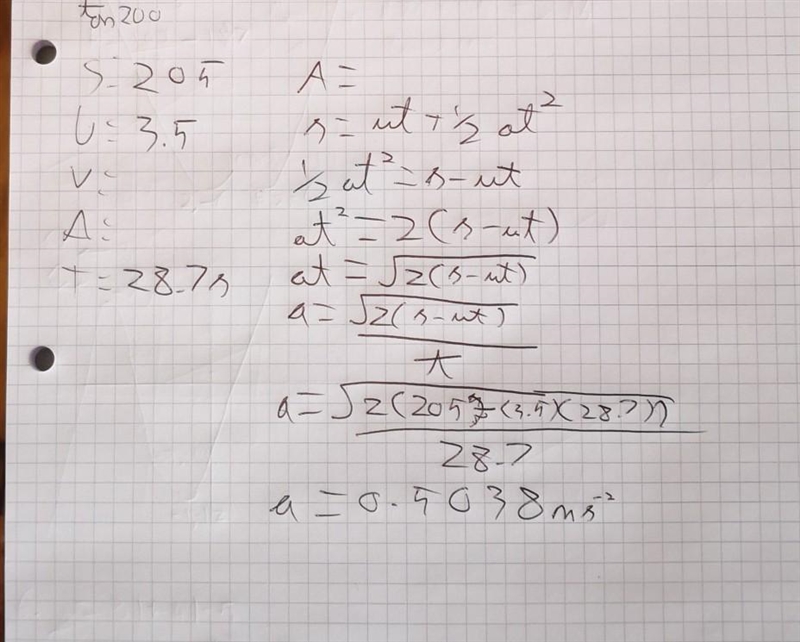 S = 205
U = 3.5
V =
A =
T = 28.7s
A =
s = ut + 1/2 at²
1/2 at² = s - ut
at² = 2(s - ut)
at = √2(s - ut)
a = √2(s - ut)
t
a = √2(205 - (3.5)(28.7))
28.7
a = 0.5038 ms⁻²